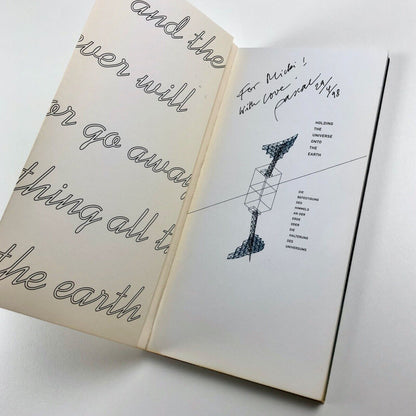 and the
ever will
or go away
thing all t
the earth
For Micki!
With Love!
Pascal 29/4/98
HOLDING
THE
UNIVERSE
ONTO
THE
EARTH
DIE
BEFESTIGUNG
DES
HIMMELS
AN DER
ERDE
ODER
DIE
HALTERUNG
DES
UNIVERSUMS